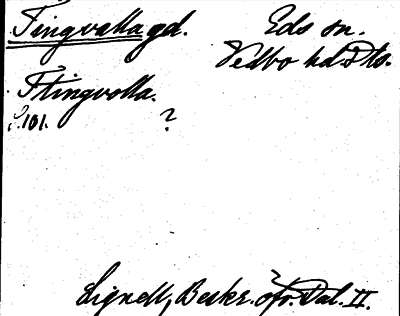 Tingvalla gd. Eds sn.
Vedbo hd. Dls.
Ttingvolla.
S. 101. ?
Lignell, Beskr. öfv. Dal. II.